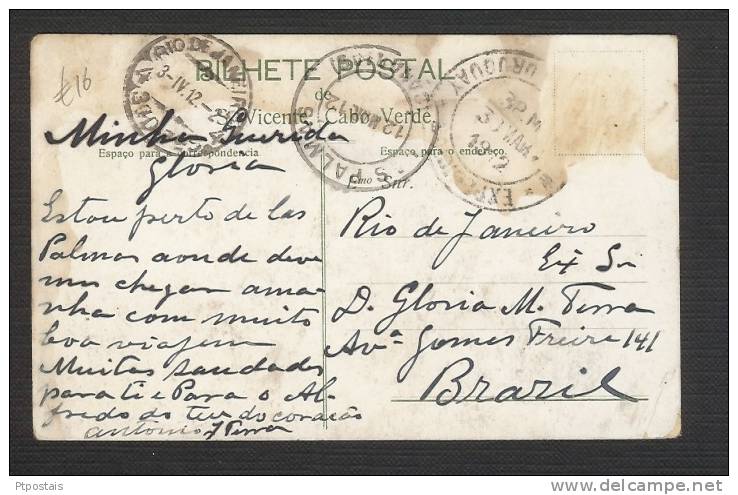 £16
BILHETE POSTAL
de
S. Vicente, Cabo Verde.
RIO DE JANEIRO
3-IV.12
PALMAS
12 MAR 12
URUGUAY
1912
Espaço para a correspondencia
Espaço para o endereço.
Minha Querida
Gloria
Estou perto de las
Palmas aonde deve
mos chegar ama-
nha com muito
boa viajem
Muitas saudades
para ti e Para o Al-
fredo do teu do coracão
Antonio J Terra
Exmo Snr.
Rio de Janeiro
Ex Sr
D. Gloria M. Terra
Avª Gomes Freire 141
Brazil
Ptpostais
delcampe.net